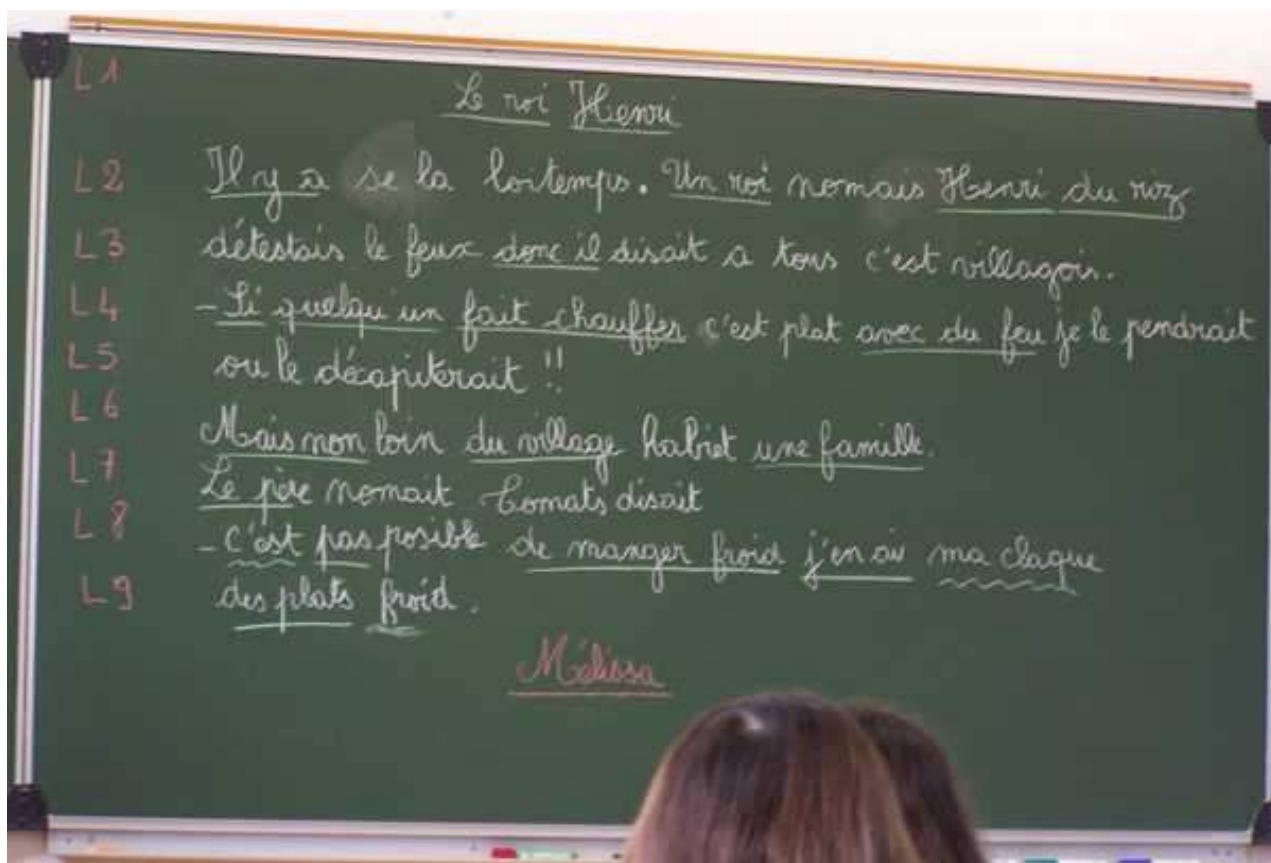 L1 Le roi Henri
L2 Il y a se la lontemps. Un roi nomais Henri du riz
L3 détestais le feux donc il disait a tous c'est villagois.
L4 - Si quelqu'un fait chauffer c'est plat avec du feu je le pendrait
L5 ou le décapiterait !!
L6 Mais non loin du village habiet une famille.
L7 Le père nomait Tomats disait
L8 - C'est pas posible de manger froid j'en ai ma claque
L9 des plats froid.
Mélissa